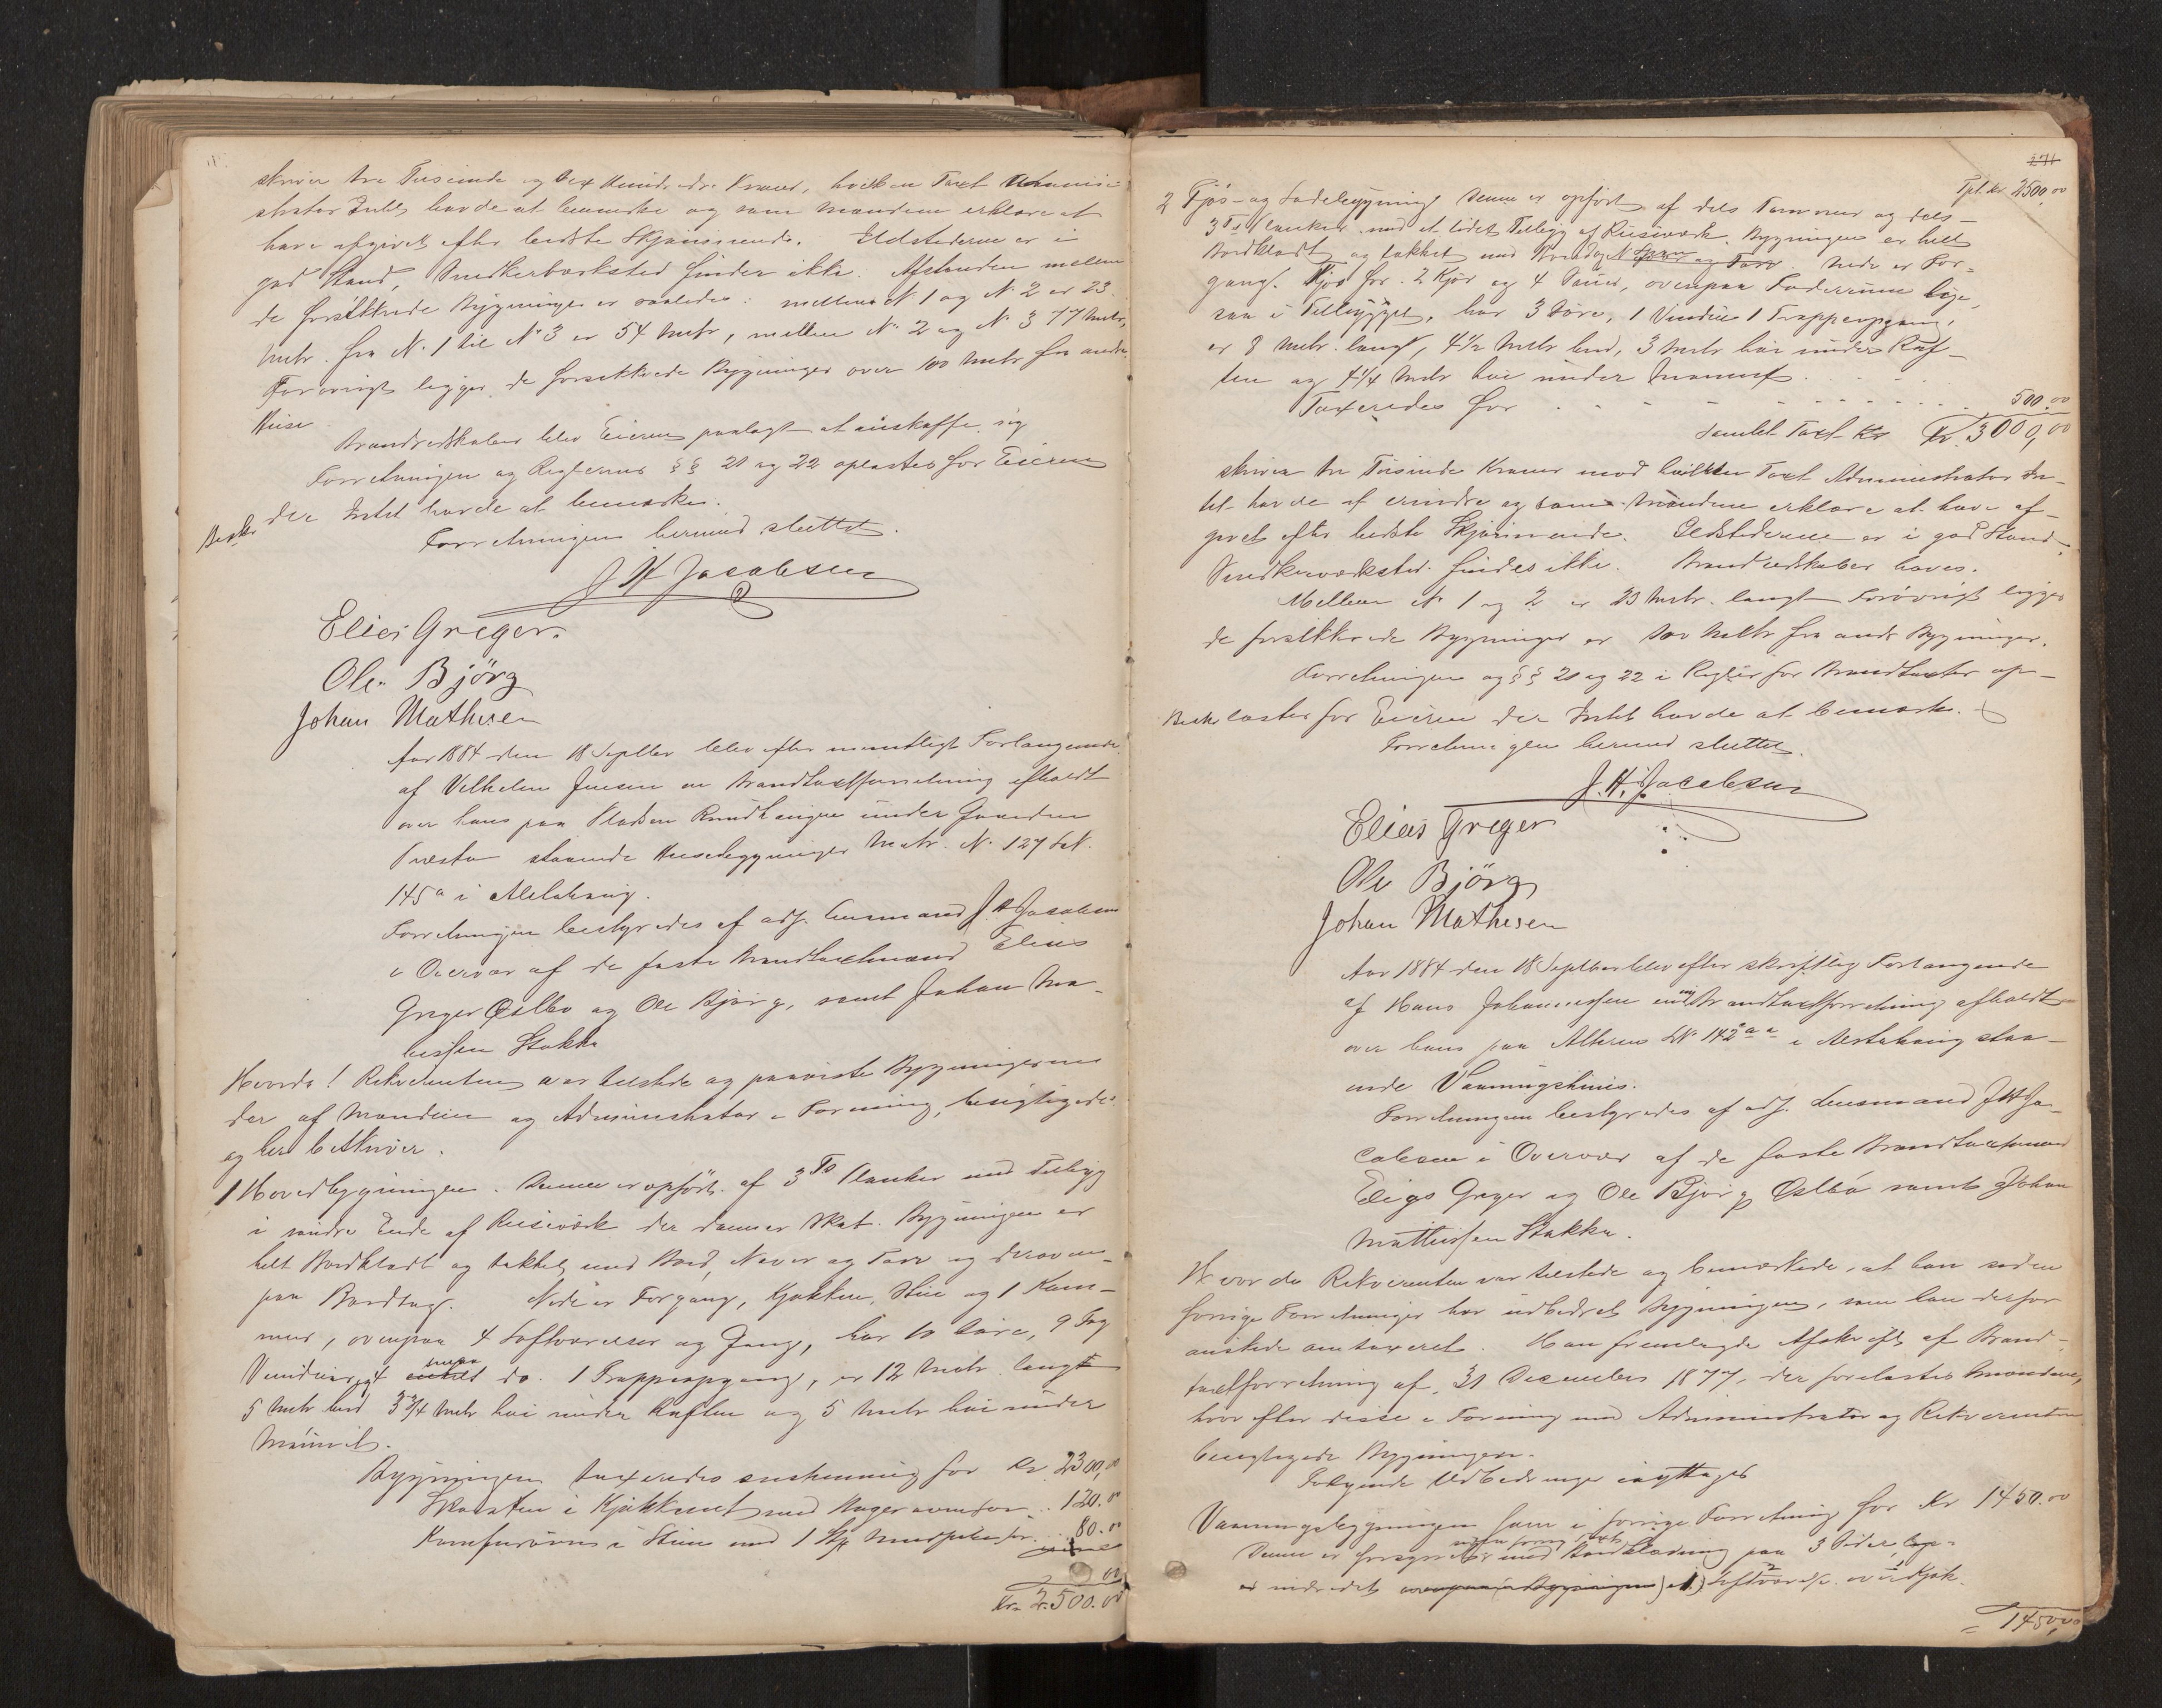 skriver tre Tusinde og sex Hundrede Kroner, hvilken Taxt Admini-
strator Intet havde at bemærke og som Mændene erklære at
have afgivet efter bedste Skjønnende. Ildstederne er i
god Stand, Snedkerværksted findes ikke. Afstanden mellem
de forsikkrede Bygninger er saaledes: mellem N. 1 og N. 2 er 23
Metr. fra N. 1 til N. 3 er 54 Metr, mellem N. 2 og N. 3 77 Metr,
Forøvrigt ligger de forsikkrede Bygninger over 100 Metr fra andre
Huse.
Brandredskaber blev Eieren paalagt at anskaffe sig
Forretningen og Reglernes §§ 21 og 22 oplæstes for Eieren
der Intet havde at bemærke.
Forretningen hermed sluttet.
J H Jacobsen
Elias Greger.
Ole Björg
Johan Mathisen
Aar 1884 den 18 Septbr blev efter mundtligt Forlangende
af Vilhelm Jensen en Brandtaxtforretning afholdt
over hans paa Pladsen under Gaarden
staaende Husebygninger Matr. N. 127 LN.
145a i Alstahaug.
Forretningen bestyredes af adj. Lensmand J. H Jacobsen
i Overvær af de faste Brandtaxtmænd Elias
Greger Østbø og Ole Bjørg, samt Johan Ma-
thissen Stokka
Hvorda! Rekvirenten var tilstede og paaviste Bygningerne
der af Mændene og Administrator i Forening, besigtigedes
og her beskriver.
1 Hovedbygningen. Denne er opført af 3 To Planker med Tilbyg
i nordre Ende af Reisværk der danner Skot. Bygningen er
helt Bordklædt og tækket med Bord, Never og Torv og deroven-
paa Bordtag. Nede er Forgang, Kjøkken, Stue og 1 Kam-
mer, ovenpaa 4 Loftværelser og Gang, har 10 Døre, 9 Fag
Vinduer, og 4 smaa do. 1 Trappeopgang, er 12 Metr. langt
5 Metr bred 3 3/4 Metr høi under Raften og 5 Metr høi under
Mønnet.
Bygningen taxeredes enstemmig for Kr 2300,00
Skorsten i Kjøkkenet med Mager 120.00
Komfurovn i Stuen med 1 80.00
Kr. 2.500.00
271
Tpt. Kr 2500,00
2 Fjøs- og Ladebygning denne er opført af dels Tømmer og dels
3 To Planker med et lidet Tilbyg af Reisværk. Bygningen er helt
Bordklædt og tækket med og Torv. Nede er For-
gang. Fjøs for 2 Kjør og 4 Sauer, ovenpaa Foderrum lige-
saa i Tilbygget, har 3 Døre, 1 Vindue 1 Trappeopgang,
er 8 Metr. langt, 4 1/2 Metr bred, 3 Metr høi under Raf-
ten og 4 1/4 Metr høi under Mønnet.
Taxeredes for 500.00
Samlet Taxt Kr Kr. 3000,00
skriver tre Tusinde Kroner mod hvilken Taxt Administrator In-
tet havde at erindre og som Mændene erklære at have af-
givet efter bedste Skjønnende. Ildstederne er i god Stand,
Snedkerværksted findes ikke. Brandredskaber haves.
Mellem N. 1 og 2 er 23 Metr. langt Forøvrigt ligger
de forsikkrede Bygninger er 100 Metr fra andr Bygninger.
Forretningen og §§ 21 og 22 i Regler for Brandtaxter op-
læstes for Eieren der Intet havde at bemærke.
Forretningen hermed sluttet.
J. H. Jacobsen
Elias Greger
Ole Björg
Johan Mathisen
Aar 1884 den 18 Septber blev efter skriftlig Forlangende
af Hans Johannessen en ny Brandtaxtforretning afholdt
over hans paa LN. 142 a a i Alstahaug staa-
ende Vaaningshuus.
Forretningen bestyredes af adj. Lensmand J H Ja-
cobsen i Overvær af de faste Brandtaxtmænd
Elias Greger og Ole Bjørg Østbø samt Johan
Mathissen Stokka.
Hvor da Rekvirenten var tilstede og bemærkede, at han siden
forrige Forretninger har udbedret Bygningen, som han derfor
ønskede omtaxeret. Han fremlagde Afskrift af Brand-
taxtforretning af 31 December 1877, der forelæstes Mændene,
hvorefter disse i Forening med Administrator og Rekvirenten
besigtigede Bygningen.
Følgende Udbedringer iagttages
Vaaningsbygningen som i forrige Forretning for Kr 1450.00
Denne er siden forrig Taxt med Bordklædning paa 3 Sider,
indredet Loftværelse over Kjøk-
1450,00